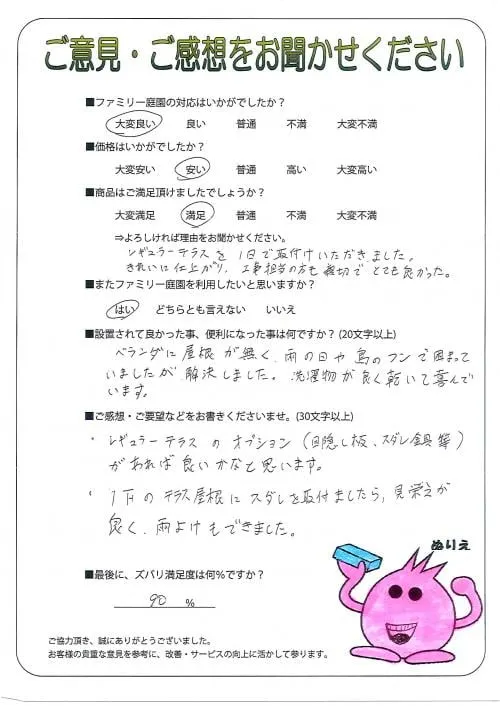 ご意見・ご感想をお聞かせください
■ファミリー庭園の対応はいかがでしたか？
大変良い 良い 普通 不満 大変不満
■価格はいかがでしたか？
大変安い 安い 普通 高い 大変高い
■商品はご満足頂けましたでしょうか？
大変満足 満足 普通 不満 大変不満
⇒よろしければ理由をお聞かせください。
レギュラーテラスを1日で取付けいただきました。
きれいに仕上がり、工事担当の方も親切でとても良かった。
■またファミリー庭園を利用したいと思いますか？
はい どちらとも言えない いいえ
■設置されて良かった事、便利になった事は何ですか？(20文字以上)
ベランダに屋根が無く、雨の日や鳥のフンで困まって
いましたが解決しました。洗濯物が良く乾いて喜んで
います。
■ご感想・ご要望などをお書きくださいませ。(30文字以上)
・レギュラーテラスのオプション(目隠し板、スダレ金具等)
があれば良いかなと思います。
・1Fのテラス屋根にスダレを取付ましたら、見栄えが
良く、雨よけもできました。
ぬりえ
■最後に、ズバリ満足度は何%ですか？
90 %
ご協力頂き、誠にありがとうございました。
お客様の貴重な意見を参考に、改善・サービスの向上に活かして参ります。